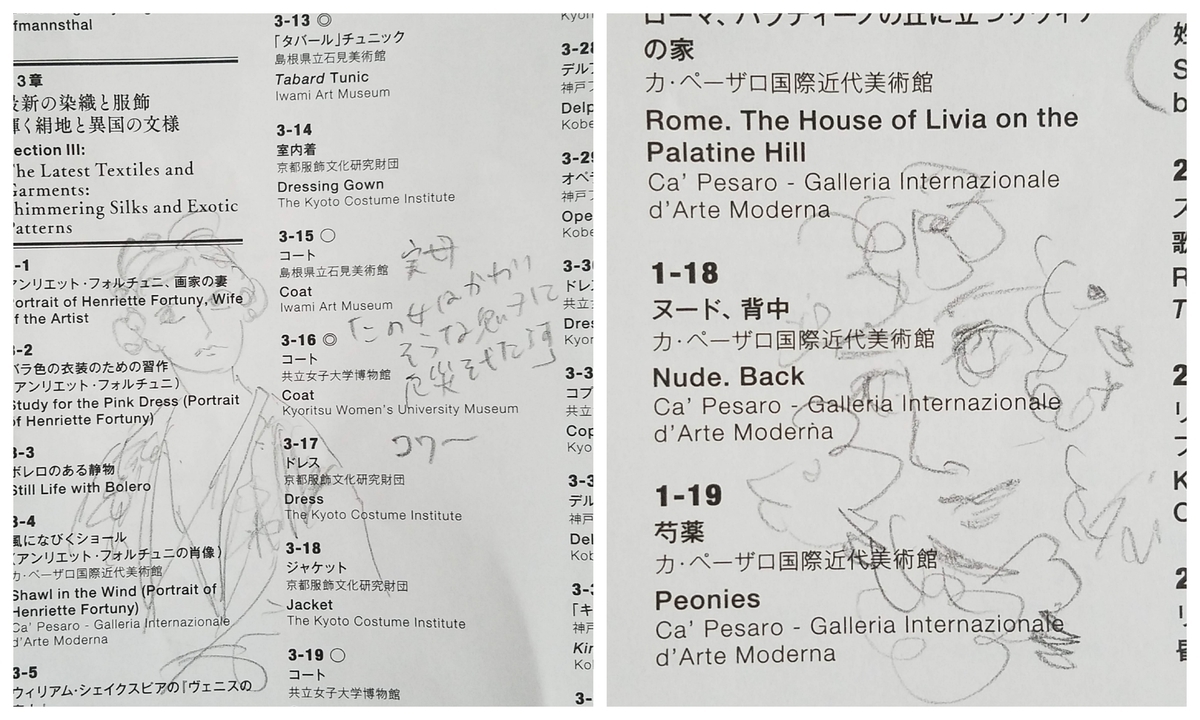 fmannsthal
3章
新の染織と服飾
く絹地と異国の文様
ection III:
he Latest Textiles and
Garments:
himmering Silks and Exotic
atterns
-1
アンリエット・フォルチュニ、画家の妻
ortrait of Henriette Fortuny, Wife
f the Artist
-2
バラ色の衣装のための習作
アンリエット・フォルチュニ）
Study for the Pink Dress (Portrait
of Henriette Fortuny)
3-3
ボレロのある静物
Still Life with Bolero
3-4
風になびくショール
（アンリエット・フォルチュニの肖像）
カ・ペーザロ国際近代美術館
Shawl in the Wind (Portrait of
Henriette Fortuny)
Ca' Pesaro - Galleria Internazionale
d'Arte Moderna
3-5
ウィリアム・シェイクスピアの『ヴェニスの
3-13 ◎
「タバール」チュニック
島根県立石見美術館
Tabard Tunic
Iwami Art Museum
3-14
室内着
京都服飾文化研究財団
Dressing Gown
The Kyoto Costume Institute
3-15 ○
コート
島根県立石見美術館
Coat
Iwami Art Museum
3-16 ◎
コート
共立女子大学博物館
Coat
Kyoritsu Women's University Museum
3-17
ドレス
京都服飾文化研究財団
Dress
The Kyoto Costume Institute
3-18
ジャケット
京都服飾文化研究財団
Jacket
The Kyoto Costume Institute
3-19 ○
コート
共立女子大学博物館
実母
コワー
Kyor
3-28
デル
神戸
Delp
Kobe
3-29
オペ
神戸
Ope
Kobe
3-30
ドレ
共立
Dres
Kyor
3-3
コプ
共立
Cop
Kyo
3-3
デル
神戸
Del
Kob
3-3
「キ
神戸
Kir
Ko
3-
ローマ、パラティーノの丘に立つリヴィア
の家
カ・ペーザロ国際近代美術館
Rome. The House of Livia on the
Palatine Hill
Ca' Pesaro - Galleria Internazionale
d'Arte Moderna
1-18
ヌード、背中
カ・ペーザロ国際近代美術館
Nude. Back
Ca' Pesaro - Galleria Internazionale
d'Arte Moderna
1-19
芍薬
カ・ペーザロ国際近代美術館
Peonies
Ca' Pesaro - Galleria Internazionale
d'Arte Moderna
S
b
2
ス
歌
R
T
2
リ
K
C
2